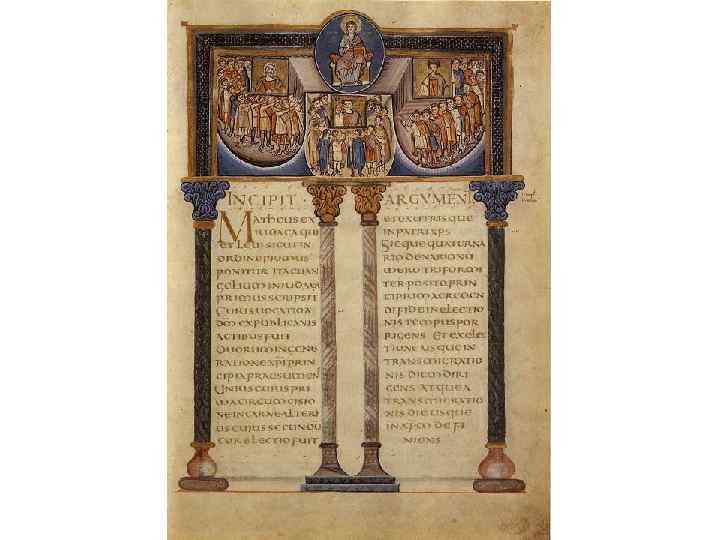 INCIPIT · ARGVMENT
MATHEUS EX
IUDAEA QUI
ET LEUI SICUT IN
ORDINE PRIMUS
PONITUR ITA EUAN
GELIUM IN IUDAEA
PRIMUS SCRIPSIT
CUIUS UOCATIO A
DM EX PUBLICANIS
ACTIBUS FUIT
DUORUM IN GENE
RATIONE XPI PRIN
CIPIA PRAESUMEN
UNIUS CUIUS PRI
MA CIRCUMCISIO
NE IN CARNE ALTERI
US CUIUS SECUNDU
COR ELECTIO FUIT
ET EX UTRISQUE
IN PATRIB XPS
SICQUE QUATERNA
RIO DENARIO NU
MERO TRIFORMI
TER POSITO PRIN
CIPIUM A CREDEN
DI FIDE IN ELECTIO
NIS TEMPUS POR
RIGENS ET EX ELEC
TIONE USQUE IN
TRANSMIGRATIO
NIS DIEM DIRI
GENS ATQUE A
TRANSMIGRATIO
NIS DIE USQUE
IN XPM DEFI
NIENS